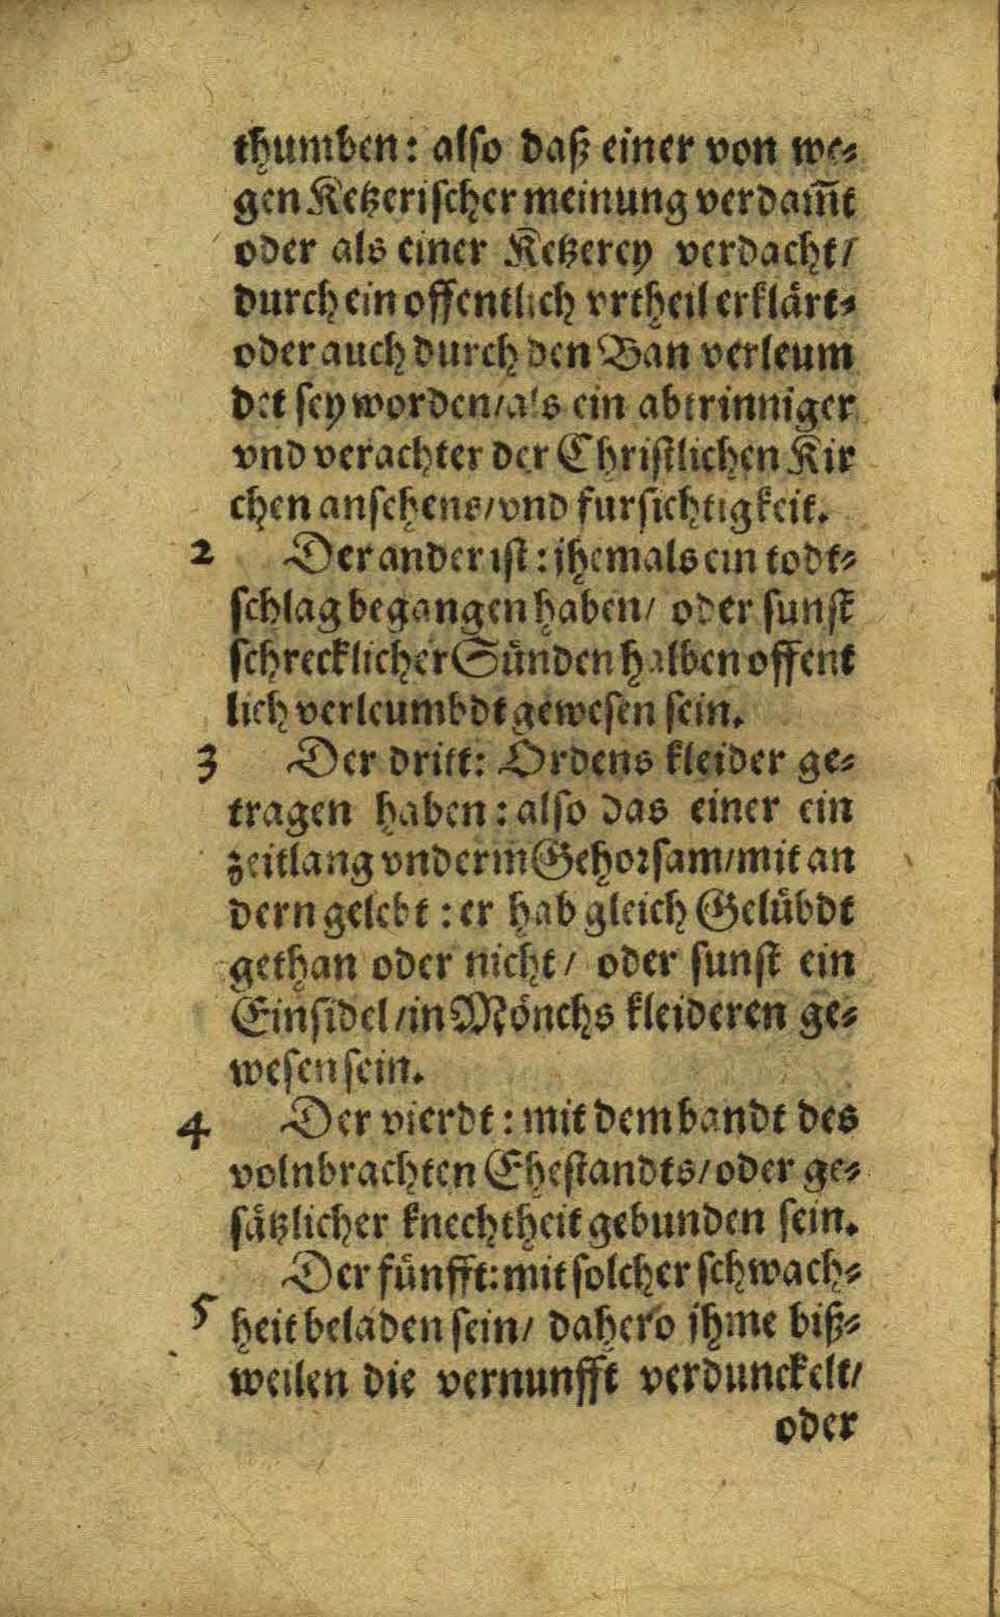 thumben: also daß einer von we⸗
gen Ketzerischer meinung verdam̄t
oder als einer Ketzerey verdacht/
durch ein offentlich vrtheil erklärt⸗
oder auch durch den Ban verleum
det sey worden/als ein abtrinniger
vnd verachter der Christlichen Kir
chen ansehens/vnd fursichtigkeit.
2 Der ander ist: jhemals ein todt⸗
schlag begangen haben/ oder sunst
schrecklicher Sünden halben offent
lich verleumbdt gewesen sein.
3 Der dritt: Ordens kleider ge⸗
tragen haben: also das einer ein
zeitlang vnderm Gehorsam/mit an
dern gelebt: er hab gleich Gelübdt
gethan oder nicht/ oder sunst ein
Einsidel/in Mönchs kleideren ge⸗
wesen sein.
4 Der vierdt: mit dem bandt des
volnbrachten Ehestandts/oder ge⸗
sätzlicher knechtheit gebunden sein.
Der fünfft: mit solcher schwach⸗
5 heit beladen sein/ dahero jhme biß⸗
weilen die vernunfft verdunckelt/
oder